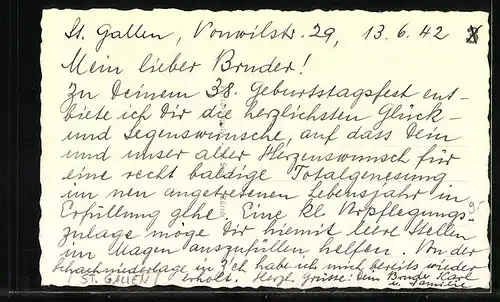 St. Gallen, Vonwilstr. 29, 13.6.42
Mein lieber Bruder!
Zu Deinem 38. Geburtstagsfest ent-
biete ich Dir die herzlichsten Glück-
und Segenswünsche, auf dass Dein
und unser aller Herzenswunsch für
eine recht baldige Totalgenesung
im neu angetretenen Lebensjahr in
Erfüllung gehe. Eine kl. Verpflegungs-
zulage möge Dir hiemit leere Stellen
im Magen auszufüllen helfen. Von der
Schachniederlage in Z'ch habe ich mich bereits wieder
(ST. GALLEN) erholt. Herzl. Grüsse! Dein Bruder Karl
u. Familie